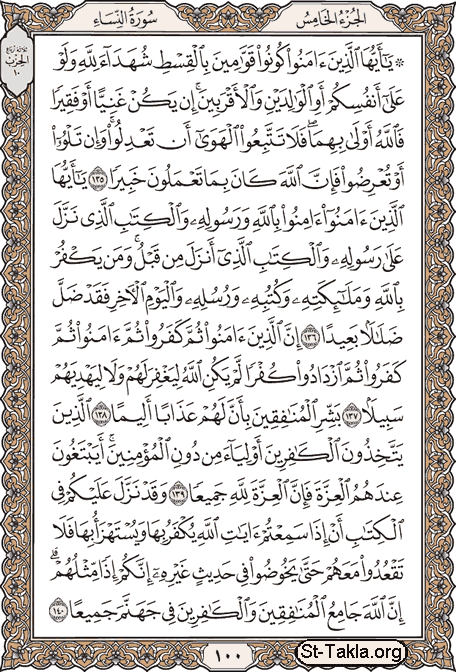 الجزء الخامس
سورة النساء
ثلاثة أرباع
الحزب
١٠
۞ يَٰٓأَيُّهَا ٱلَّذِينَ ءَامَنُوا۟ كُونُوا۟ قَوَّٰمِينَ بِٱلْقِسْطِ شُهَدَآءَ لِلَّهِ وَلَوْ
عَلَىٰٓ أَنفُسِكُمْ أَوِ ٱلْوَٰلِدَيْنِ وَٱلْأَقْرَبِينَ ۚ إِن يَكُنْ غَنِيًّا أَوْ فَقِيرًا
فَٱللَّهُ أَوْلَىٰ بِهِمَا ۖ فَلَا تَتَّبِعُوا۟ ٱلْهَوَىٰٓ أَن تَعْدِلُوا۟ ۚ وَإِن تَلْوُۥٓا۟
أَوْ تُعْرِضُوا۟ فَإِنَّ ٱللَّهَ كَانَ بِمَا تَعْمَلُونَ خَبِيرًا ١٣٥ يَٰٓأَيُّهَا
ٱلَّذِينَ ءَامَنُوٓا۟ ءَامِنُوا۟ بِٱللَّهِ وَرَسُولِهِۦ وَٱلْكِتَٰبِ ٱلَّذِى نَزَّلَ
عَلَىٰ رَسُولِهِۦ وَٱلْكِتَٰبِ ٱلَّذِىٓ أَنزَلَ مِن قَبْلُ ۚ وَمَن يَكْفُرْ
بِٱللَّهِ وَمَلَٰٓئِكَتِهِۦ وَكُتُبِهِۦ وَرُسُلِهِۦ وَٱلْيَوْمِ ٱلْءَاخِرِ فَقَدْ ضَلَّ
ضَلَٰلًۢا بَعِيدًا ١٣٦ إِنَّ ٱلَّذِينَ ءَامَنُوا۟ ثُمَّ كَفَرُوا۟ ثُمَّ ءَامَنُوا۟ ثُمَّ
كَفَرُوا۟ ثُمَّ ٱزْدَادُوا۟ كُفْرًا لَّمْ يَكُنِ ٱللَّهُ لِيَغْفِرَ لَهُمْ وَلَا لِيَهْدِيَهُمْ
سَبِيلًۢا ١٣٧ بَشِّرِ ٱلْمُنَٰفِقِينَ بِأَنَّ لَهُمْ عَذَابًا أَلِيمًا ١٣٨ ٱلَّذِينَ
يَتَّخِذُونَ ٱلْكَٰفِرِينَ أَوْلِيَآءَ مِن دُونِ ٱلْمُؤْمِنِينَ ۚ أَيَبْتَغُونَ
عِندَهُمُ ٱلْعِزَّةَ فَإِنَّ ٱلْعِزَّةَ لِلَّهِ جَمِيعًا ١٣٩ وَقَدْ نَزَّلَ عَلَيْكُمْ فِى
ٱلْكِتَٰبِ أَنْ إِذَا سَمِعْتُمْ ءَايَٰتِ ٱللَّهِ يُكْفَرُ بِهَا وَيُسْتَهْزَأُ بِهَا فَلَا
تَقْعُدُوا۟ مَعَهُمْ حَتَّىٰ يَخُوضُوا۟ فِى حَدِيثٍ غَيْرِهِۦٓ ۚ إِنَّكُمْ إِذًا مِّثْلُهُمْ ۗ
إِنَّ ٱللَّهَ جَامِعُ ٱلْمُنَٰفِقِينَ وَٱلْكَٰفِرِينَ فِى جَهَنَّمَ جَمِيعًا ١٤٠
١٠٠
St-Takla.org